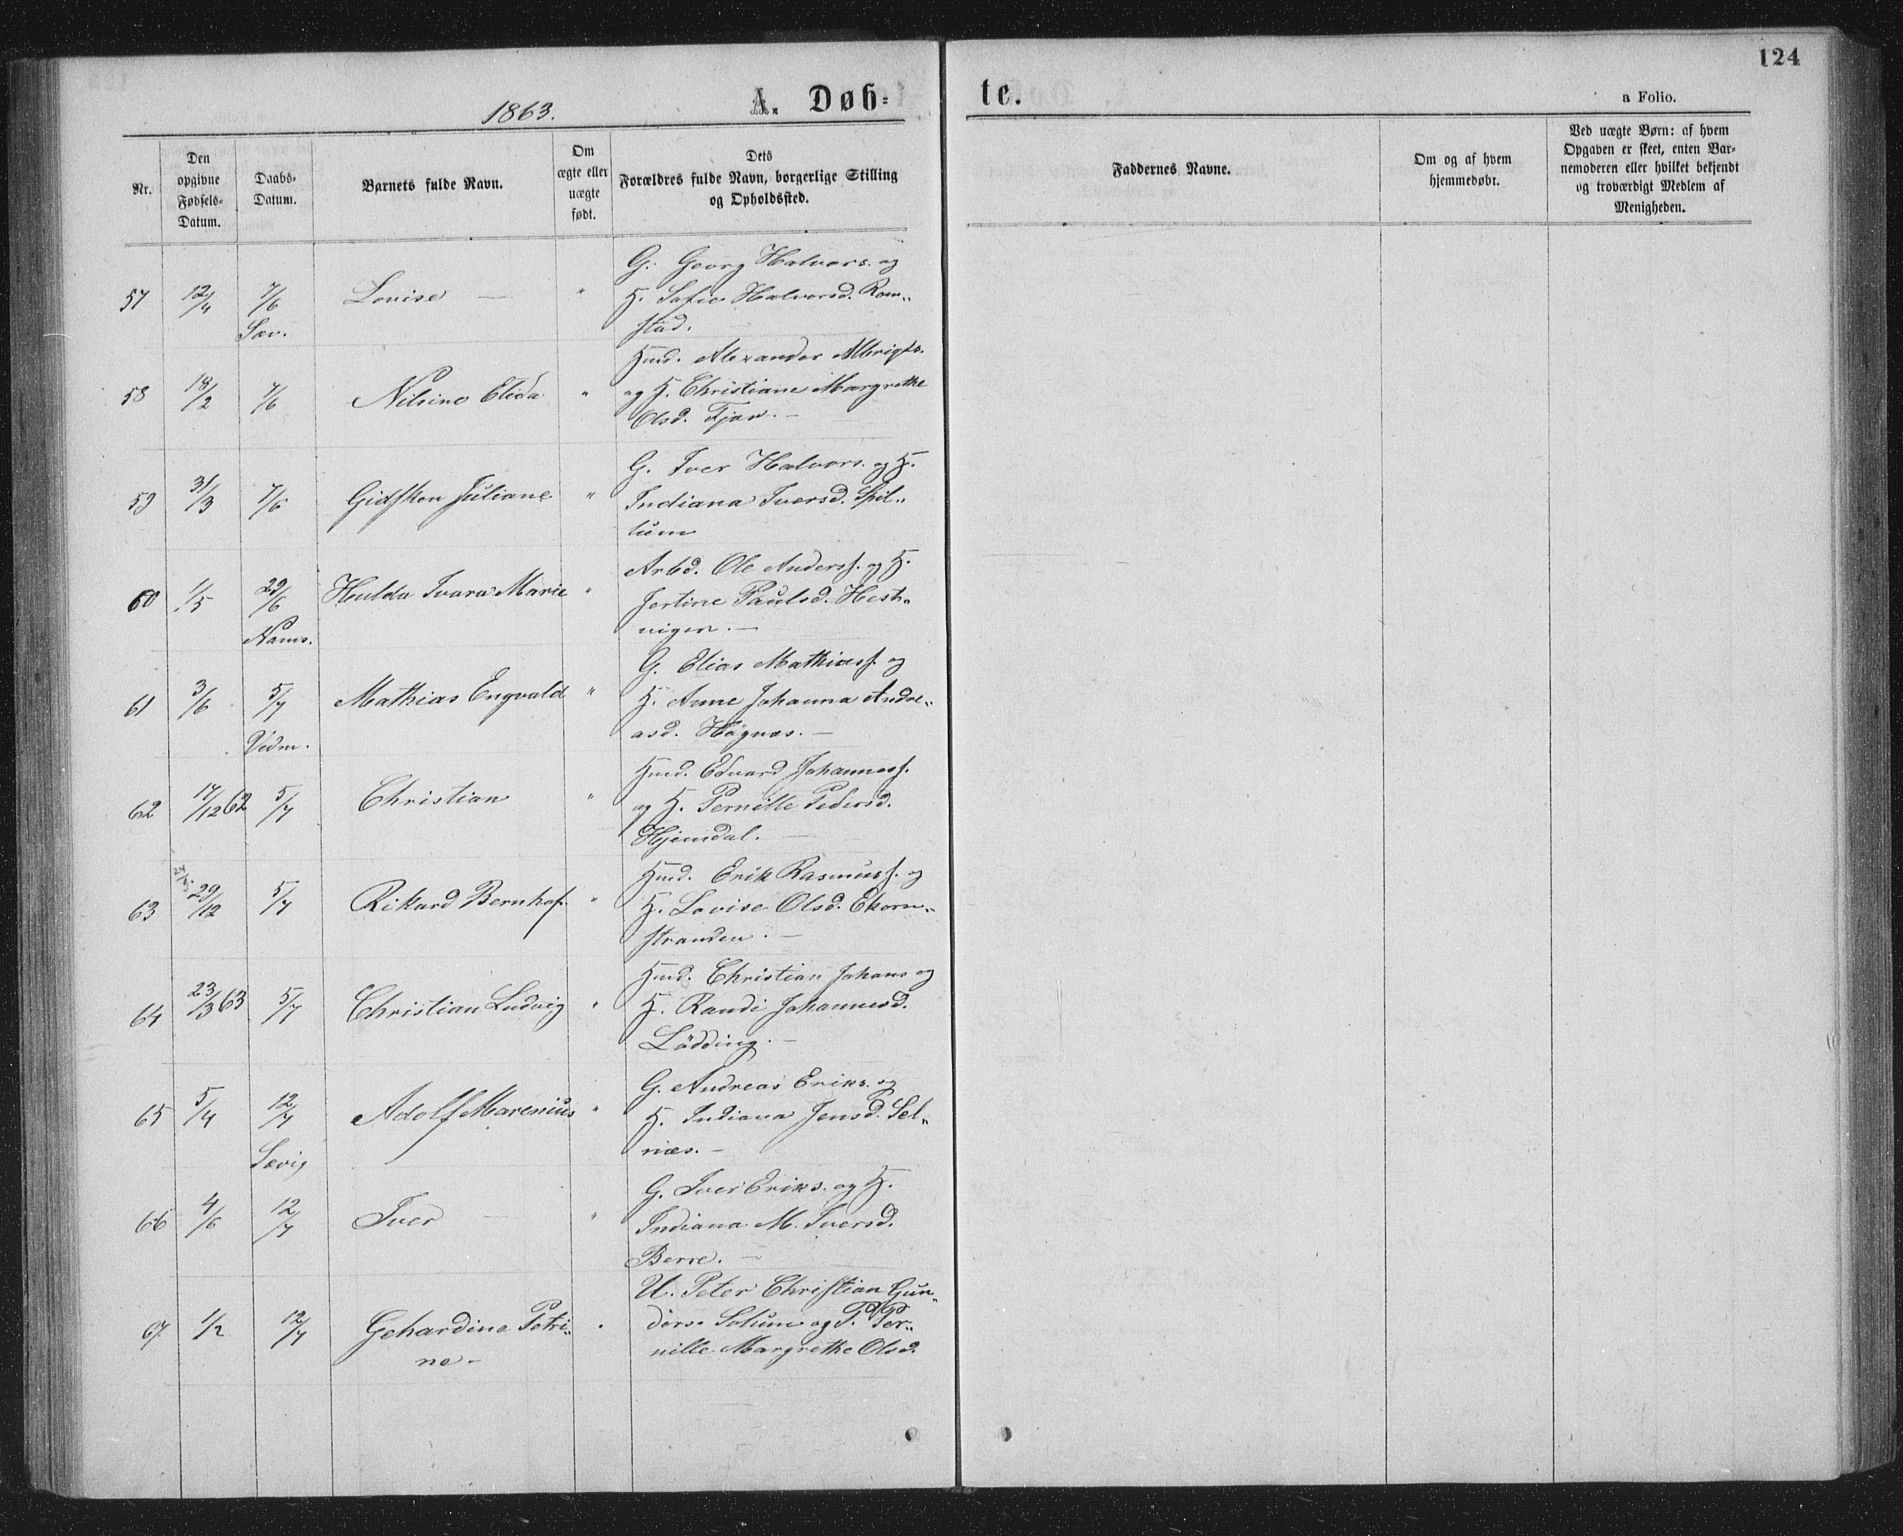 124
1863.
A. Døb-
te.
a Folio.
Nr.
Den
opgivne
Fødsels-
Datum.
Daabs-
Datum.
Barnets fulde Navn.
Om
ægte eller
uægte
født.
Dets
Forældres fulde Navn, borgerlige Stilling
og Opholdssted.
Faddernes Navne.
Om og af hvem
hjemmedøbt.
Ved uægte Børn: af hvem
Opgaven er skeet, enten Bar-
nemoderen eller hvilket bekjendt
og troværdigt Medlem af
Menigheden.
57 12/4 7/6 Lovise — "
Sæv.
G. Georg Halvors. og
H. Sofie Halvorsd. Ram-
stad.
58 18/2 7/6 Nilsine Elida "
Hmd. Alexander Albrigts.
og H. Christiane Margrethe
Olsd. Fjær. —
59 31/3 7/6 Gidsken Juliane "
G. Iver Halvors. og H.
Indiana Iversd. Spil-
lum
60 1/5 29/6 Hulda Ivara Marie "
Nams.
Arbd. Ole Anderss. og H.
Jertine Paulsd. Hest-
vigen. —
61 3/6 5/7 Mathias Engvald "
Vidm.
G. Elias Mathiass. og
H. Anne Johanna Andre-
asd. Høgnæs. —
62 17/12 62 5/7 Christian "
Hmd. Edvard Johanness.
og H. Pernille Pedersd.
Hjemdal. —
63 29/12 5/7 Rikard Bernhof. "
Hmd. Erik Rasmuss. og
H. Lovise Olsd. Ekorn-
stranden. —
64 23/3 63 5/7 Christian Ludvig "
Hmd. Christian Johans og
H. Randi Johannesd.
Lødding. —
65 5/4 12/7 Adolf Marenius "
Sævig
G. Andreas Eriks. og
H. Indiana Jensd. Sel-
næs. —
66 4/6 12/7 Iver — "
G. Iver Eriks. og H.
Indiana M. Iversd.
Berre. —
67 1/2 12/7 Gehardine Petri-
ne —
U. Peter Christian Gun-
ders. Solum og P. Per-
nille Margrethe Olsd.